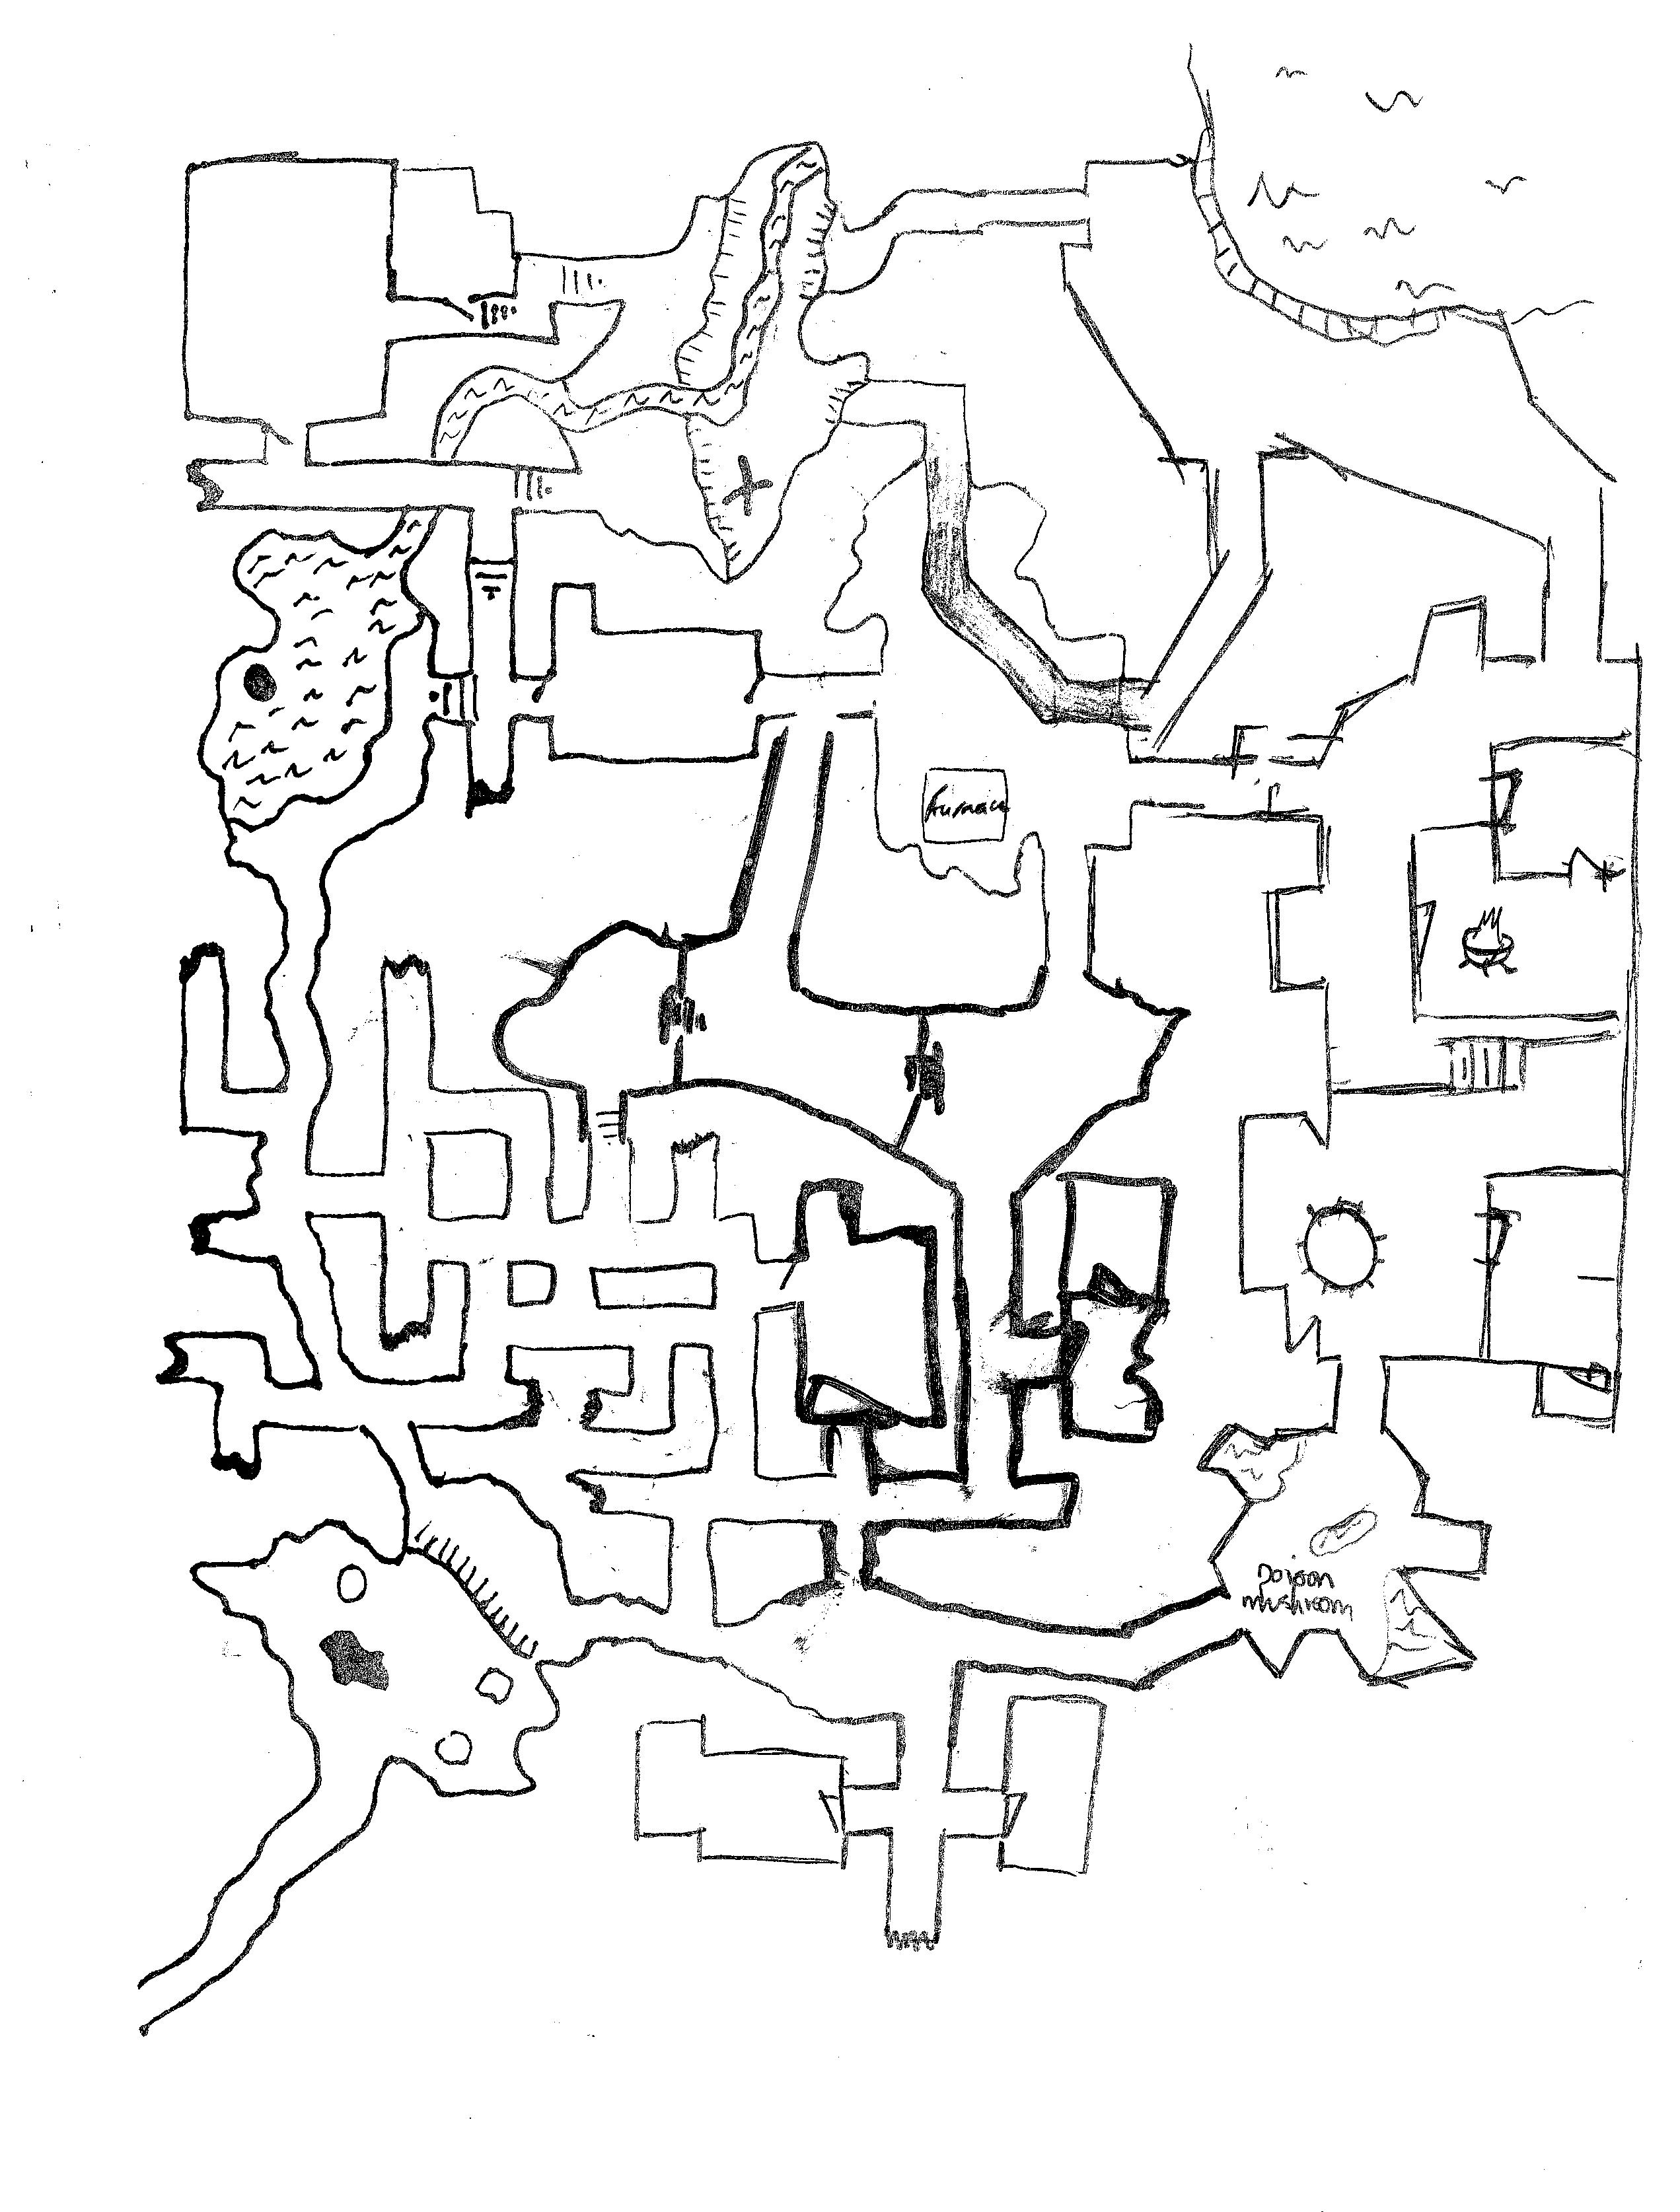 furnace
Poison
mushroom